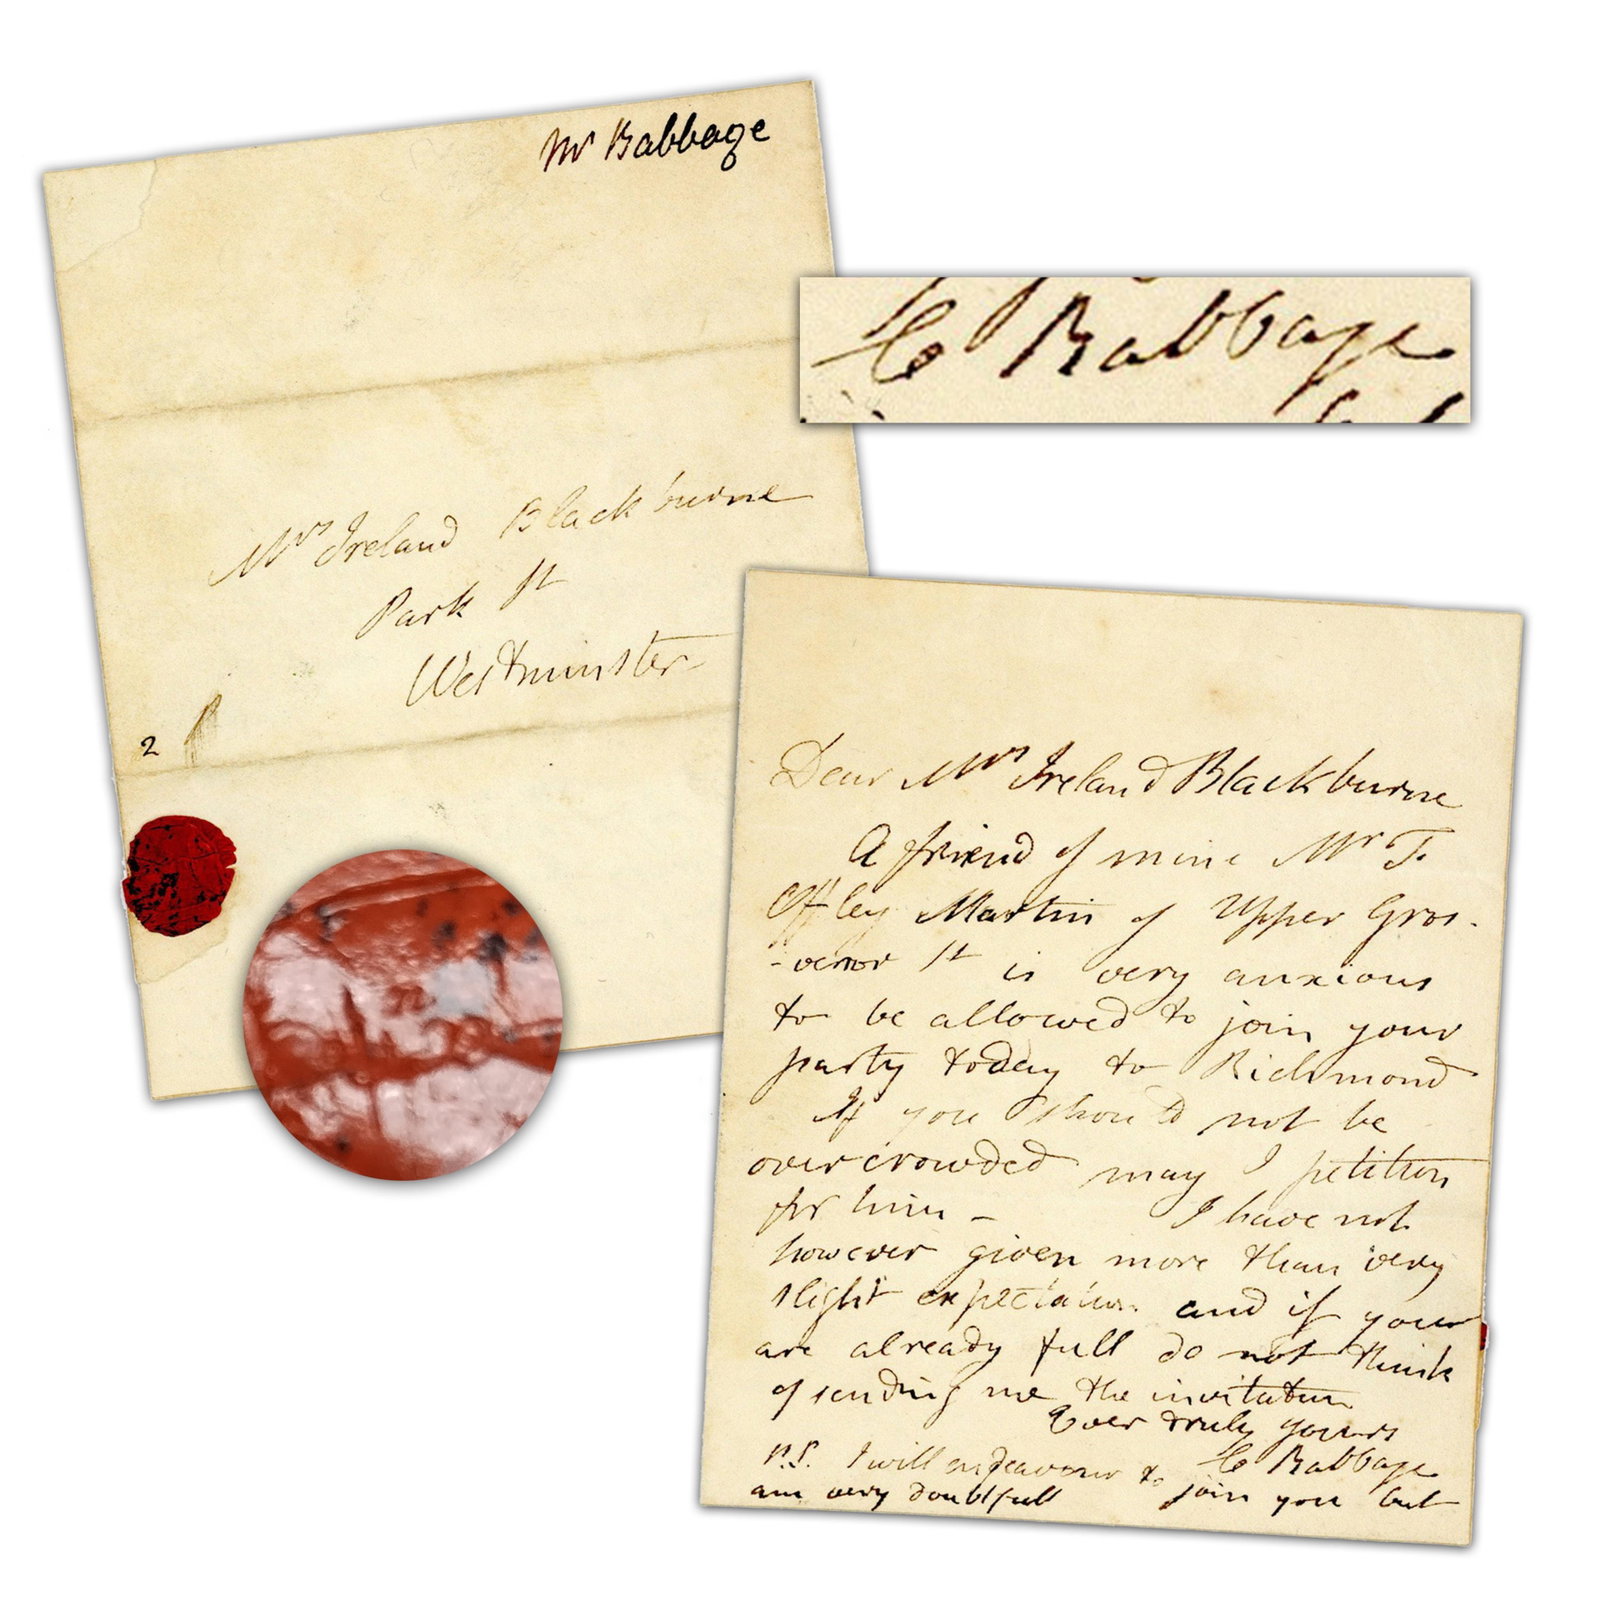 Mr Babbage
C Babbage
Mrs Ireland Blackburne
Park St
Westminster
2
Dear Mrs Ireland Blackburne
A friend of mine Mr T.
Offley Martin of Upper Gros-
-venor St is very anxious
to be allowed to join your
party today to Richmond
If you should not be
overcrowded may I petition
for him – I have not
however given more than very
slight expectation and if you
are already full do not think
of sending me the invitation
Ever truly yours
C Babbage
P.S. I will endeavour to join you but
am very doubtfull